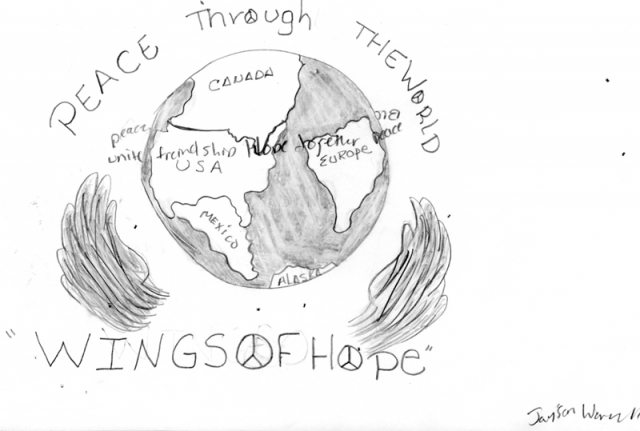 PEACE Through THE WORLD
CANADA
peace
unite freindship Hope together peace
USA
EUROPE
MEXICO
ALASKA
"WINGS OF HOpe"